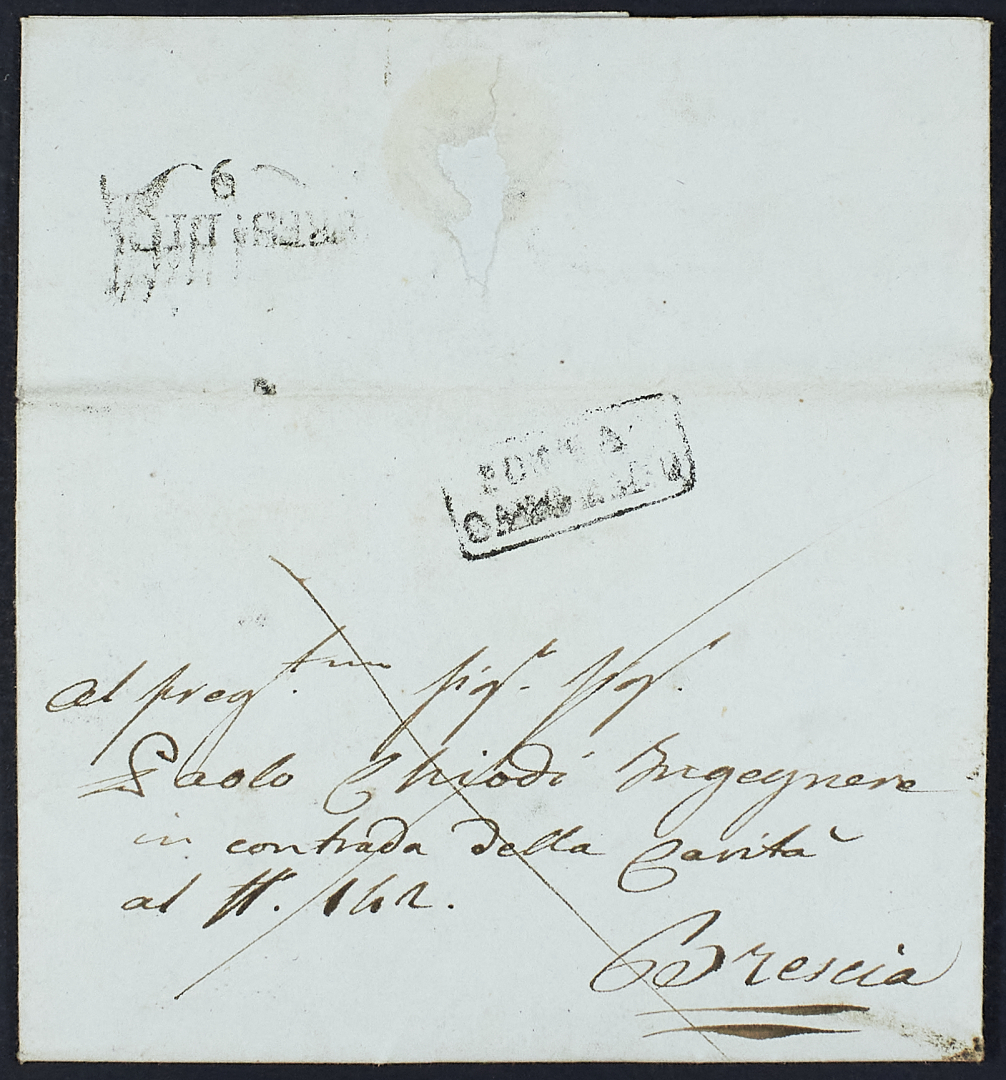 6
POSTA
Al preg.tmo sigr. sigr.
Paolo Chiodi Ingegnere
in contrada della Carità
al N. 142.
Brescia